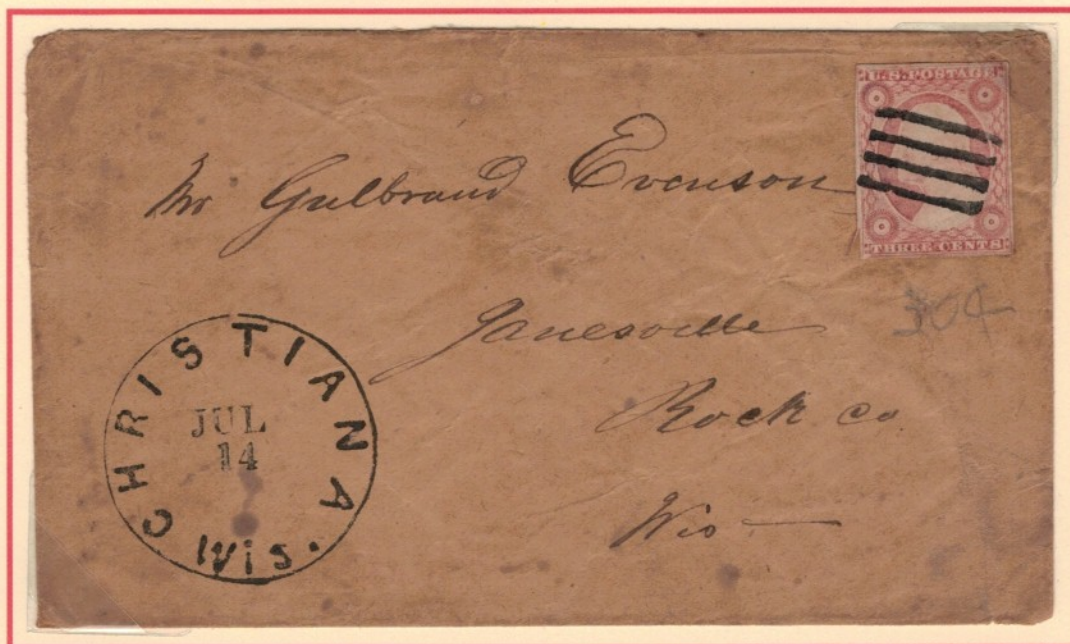 U.S. POSTAGE
THREE CENTS
Mr Gulbrand Evenson
Janesville
Rock co.
Wis
CHRISTIANA
JUL
14
Wis.